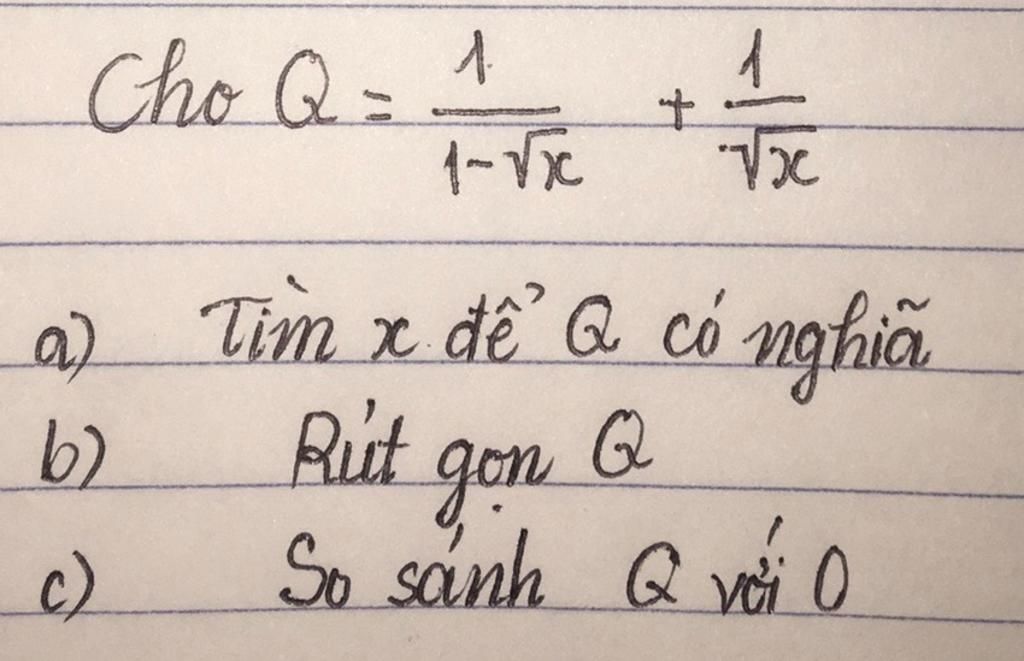 Cho Q = 1/(1-√x) + 1/√x
a) Tìm x để Q có nghĩã
b) Rút gọn Q
c) So sánh Q với 0